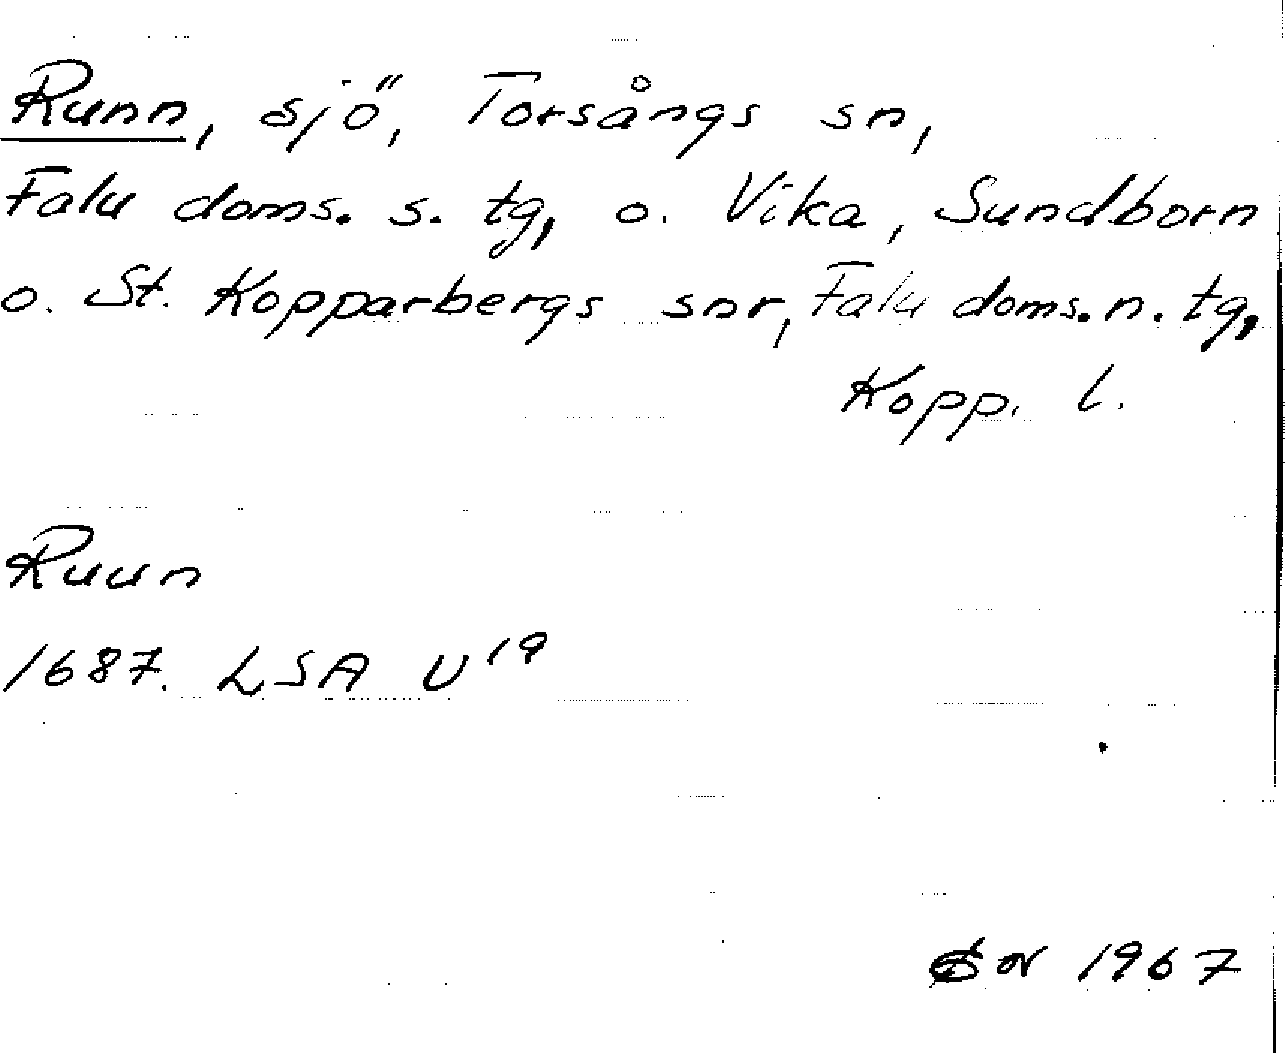 Runn, sjö, Torsångs sn,
Falu doms. s. tg, o. Vika, Sundborn
o. St. Kopparbergs snr, Falu doms. n. tg,
Kopp. l.
Ruun
1687. LSA U¹⁹
1967